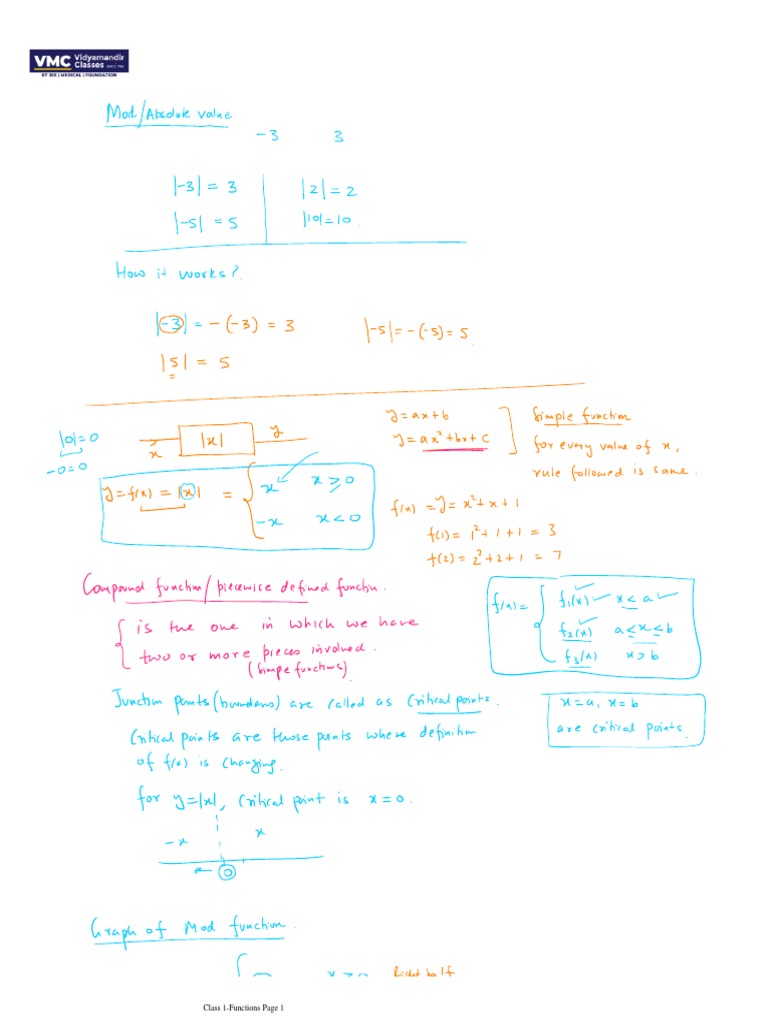 VMC Vidyamandir
Classes
SINCE 1986
IIT JEE | MEDICAL | FOUNDATION
Mod/Absolute value
-3 3
|-3| = 3 |2| = 2
|-5| = 5 |10| = 10.
How it works?
|-3| = -(-3) = 3 |-5| = -(-5) = 5
|5| = 5
|0| = 0
-0=0
x |x| y
y = f(x) = |x| = { x x ≥ 0
-x x < 0
y = ax+b
y = ax²+bx+c
Simple function
for every value of x,
rule followed is same.
f(x) = y = x²+x+1
f(1) = 1²+1+1 = 3
f(2) = 2²+2+1 = 7
Compound function/piecewise defined function.
{ is the one in which we have
two or more pieces involved.
(simple functions)
f(x) = { f₁(x) x ≤ a
f₂(x) a ≤ x ≤ b
f₃(x) x > b
Junction points (boundaries) are called as Critical points.
x=a, x=b
are critical points.
Critical points are those points where definition
of f(x) is changing.
for y=|x|, critical point is x=0.
-x x
0
Graph of Mod function.
Right half
Class 1-Functions Page 1